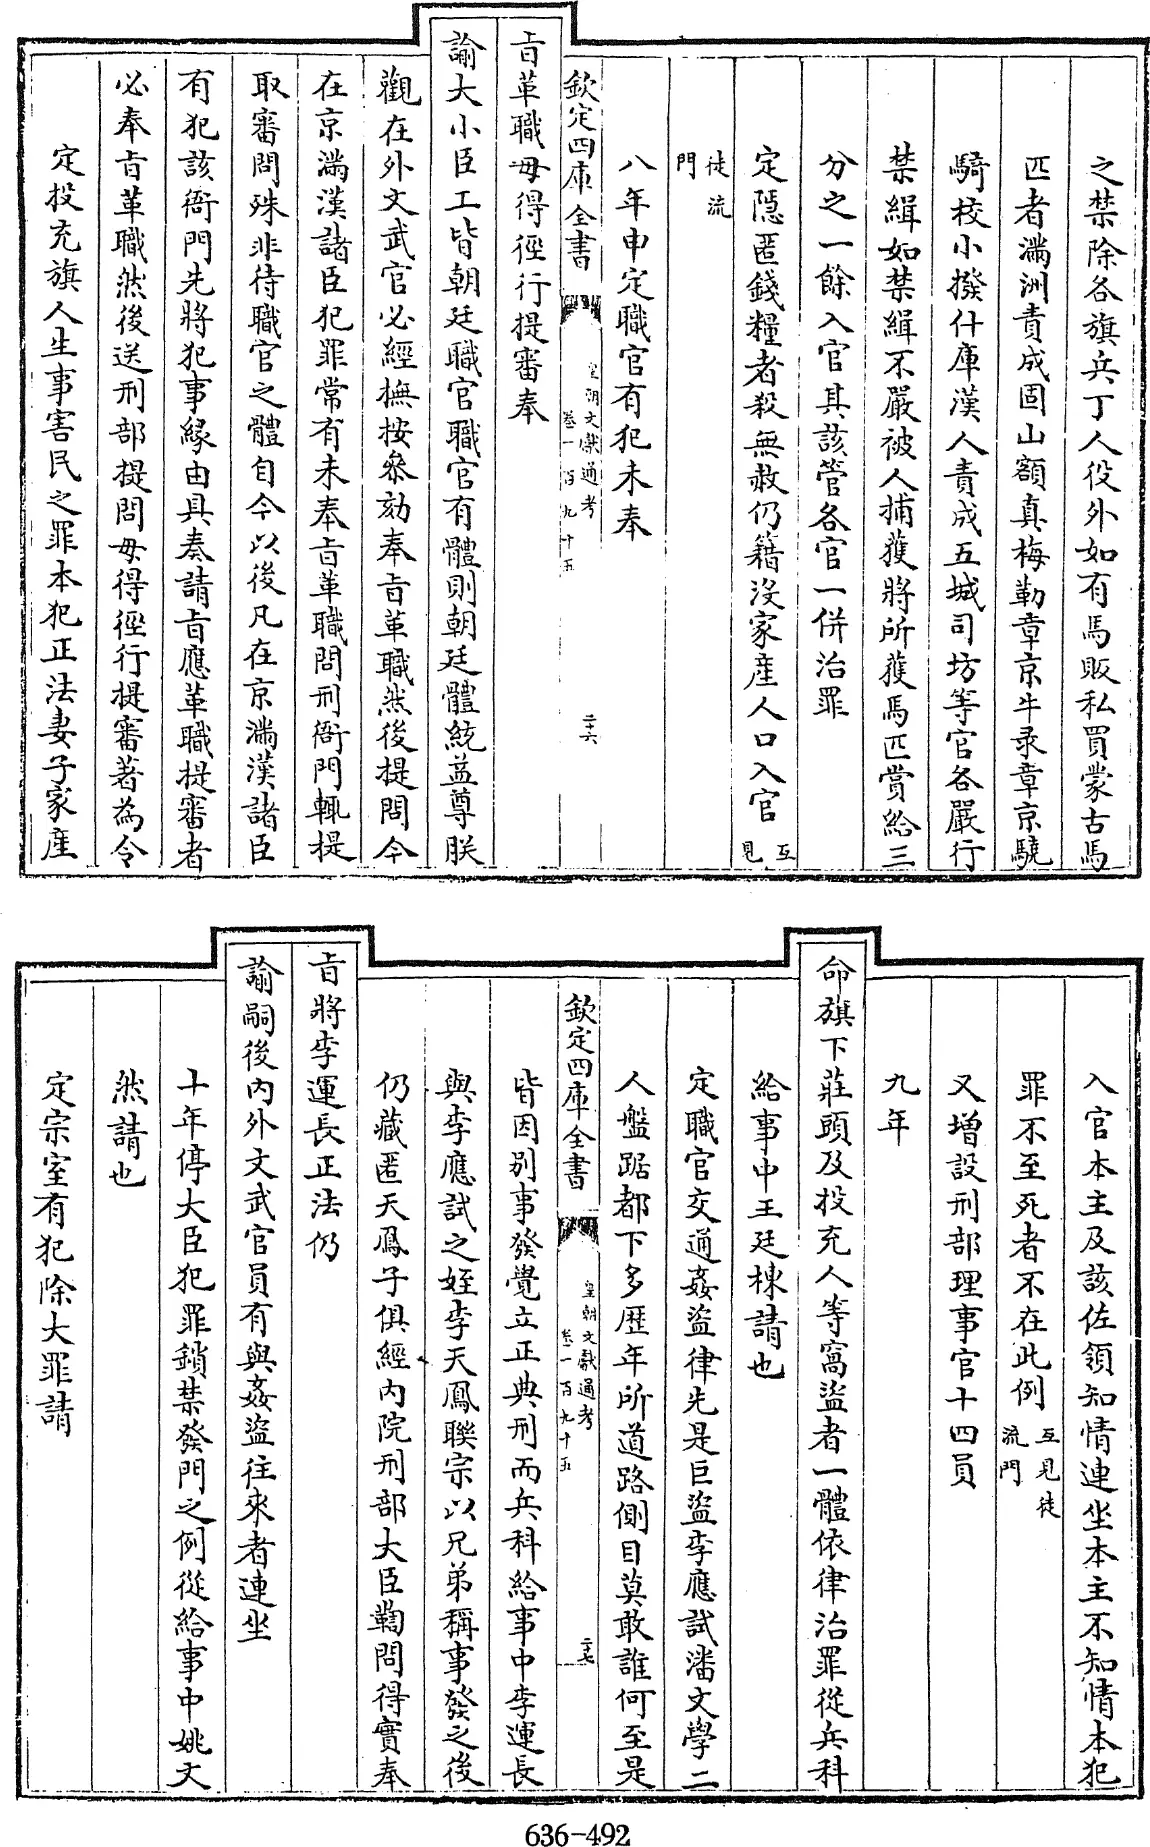 之禁除各旗兵丁人役外如有馬販私買蒙古馬
匹者滿洲責成固山額真梅勒章京牛录章京驍
騎校小撥什庫漢人責成五城司坊等官各嚴行
禁緝如禁緝不嚴被人捕獲將所獲馬匹賞給三
分之一餘入官其該管各官一併治罪
定隱匿錢糧者殺無赦仍籍没家産人口入官互見
徒流門
八年申定職官有犯未奉
欽定四庫全書 皇朝文獻通考 卷一百九十五 二十六
㫖革職毋得徑行提審奉
諭大小臣工皆朝廷職官職官有體則朝廷體統益尊朕
觀在外文武官必經撫按叅劾奉㫖革職然後提問今
在京滿漢諸臣犯罪常有未奉㫖革職問刑衙門輒提
取審問殊非待職官之體自今以後凡在京滿漢諸臣
有犯該衙門先將犯事緣由具奏請㫖應革職提審者
必奉㫖革職然後送刑部提問毋得徑行提審著為令
定投充旗人生事害民之罪本犯正法妻子家産
入官本主及該佐領知情連坐本主不知情本犯
罪不至死者不在此例互見徒流門
又增設刑部理事官十四員
九年
命旗下莊頭及投充人等窩盜者一體依律治罪從兵科
給事中王廷棟請也
定職官交通姦盜律先是巨盜李應試潘文學二
人盤踞都下多歴年所道路側目莫敢誰何至是
欽定四庫全書 皇朝文獻通考 卷一百九十五 二十七
皆因别事發覺立正典刑而兵科給事中李運長
與李應試之姪李天鳳聯宗以兄弟稱事發之後
仍藏匿天鳳子俱經内院刑部大臣鞫問得實奉
㫖將李運長正法仍
諭嗣後内外文武官員有與姦盜往來者連坐
十年停大臣犯罪鎖禁發門之例從給事中姚文
然請也
定宗室有犯除大罪請
636-492